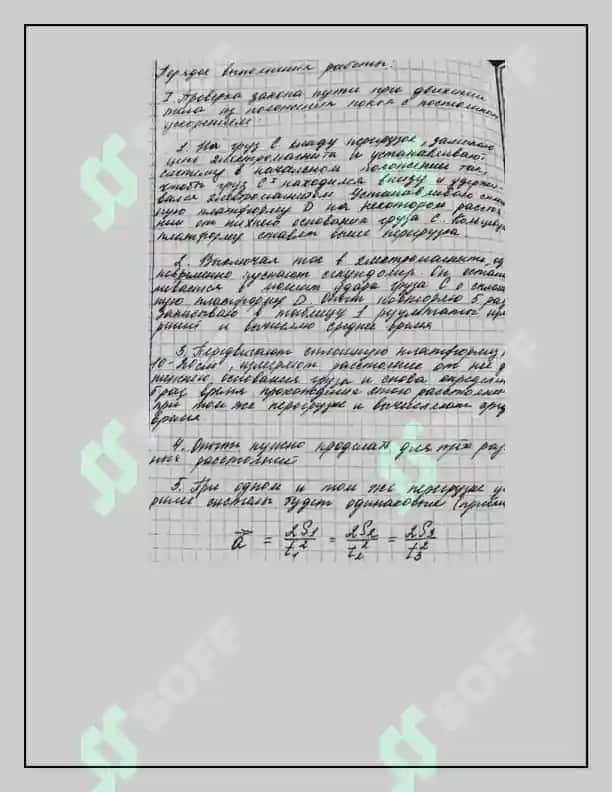 Порядок выполнения работы:
I Проверка закона пути при движении
тела из положения покоя с постоянным
ускорением.
1. На груз C кладу перегрузок, замыкаю
цепь электромагнита и устанавливают
систему в начальном положении так,
чтобы груз C находился внизу и удержи-
вался электромагнитом. Устанавливаю сплош-
ную платформу D на некотором расстоя-
нии от нижнего основания груза C. Кольцевую
платформу ставят выше перегрузка.
2. Выключая ток в электромагните, од
новременно пускают секундомер. Он останав
ливается в момент удара груза C о сплош
ную платформу D. Опыт повторяю 5 раз
записываю в таблицу 1 результаты
и вычисляю среднее время
3. Передвигают сплошную платформу
10-20см, измеряют расстояние от неё
основания груза и снова определяют
5 раз время прохождения этого расстояния
при том же перегрузке и вычисляют сред
время.
4. Опыты нужно проделать для трёх раз
ных расстояний
5. При одном и том же перегрузке
системы будет одинаковые
a⃗ = 2S1/t1² = 2S2/t2² = 2S3/t3²
SOFF
SOFF
SOFF
SOFF
SOFF
SOFF